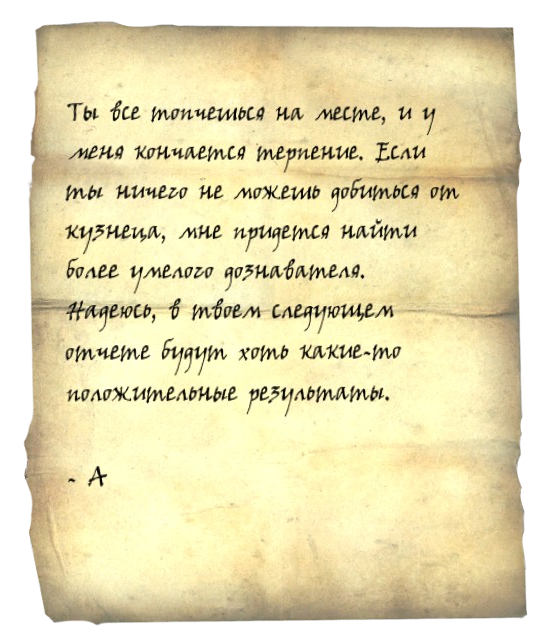 Ты все топчешься на месте, и у
меня кончается терпение. Если
ты ничего не можешь добиться от
кузнеца, мне придется найти
более умелого дознавателя.
Надеюсь, в твоем следующем
отчете будут хоть какие-то
положительные результаты.
- А